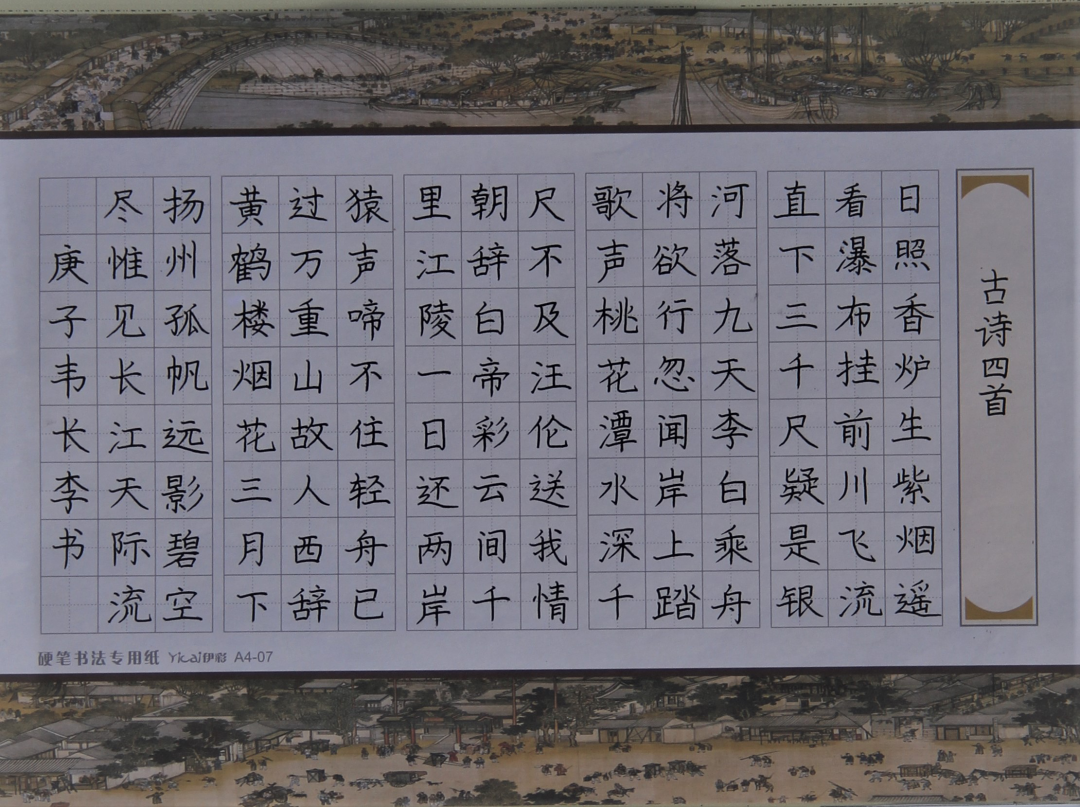 古诗四首
日照香炉生紫烟遥
看瀑布挂前川飞流
直下三千尺疑是银
河落九天李白乘舟
将欲行忽闻岸上踏
歌声桃花潭水深千
尺不及汪伦送我情
朝辞白帝彩云间千
里江陵一日还两岸
猿声啼不住轻舟已
过万重山故人西辞
黄鹤楼烟花三月下
扬州孤帆远影碧空
尽惟见长江天际流
庚子韦长李书
硬笔书法专用纸 Yicai伊彩 A4-07